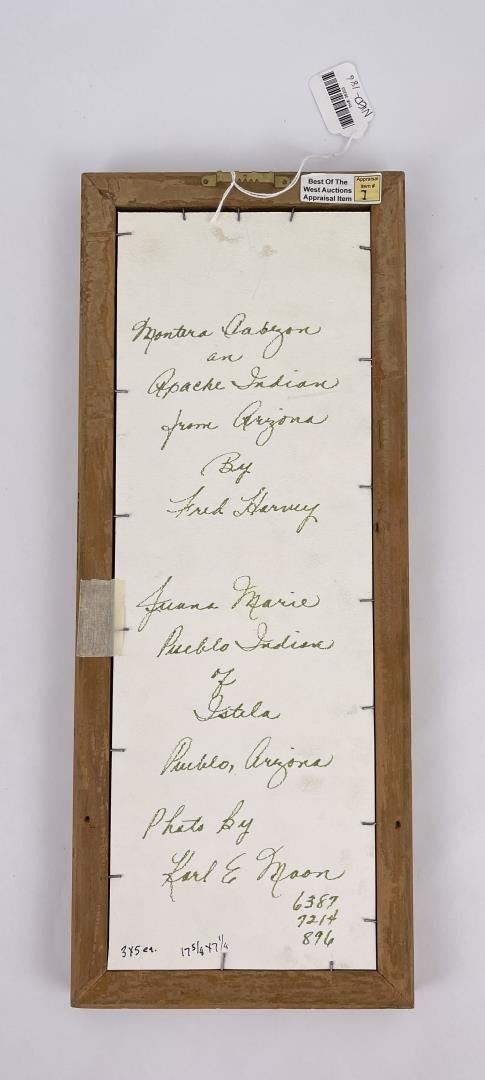 NICO-186
Best Of The
West Auctions
Appraisal Item
Appraisal
Item #
1
Montera Cabezon
an
Apache Indian
from Arizona
By
Fred Harvey
Juana Marie
Pueblo Indian
of
Isteta
Pueblo, Arizona
Photo By
Karl E Moon
6387
7214
896
3x5 ea. 17 5/8 x 7 1/4